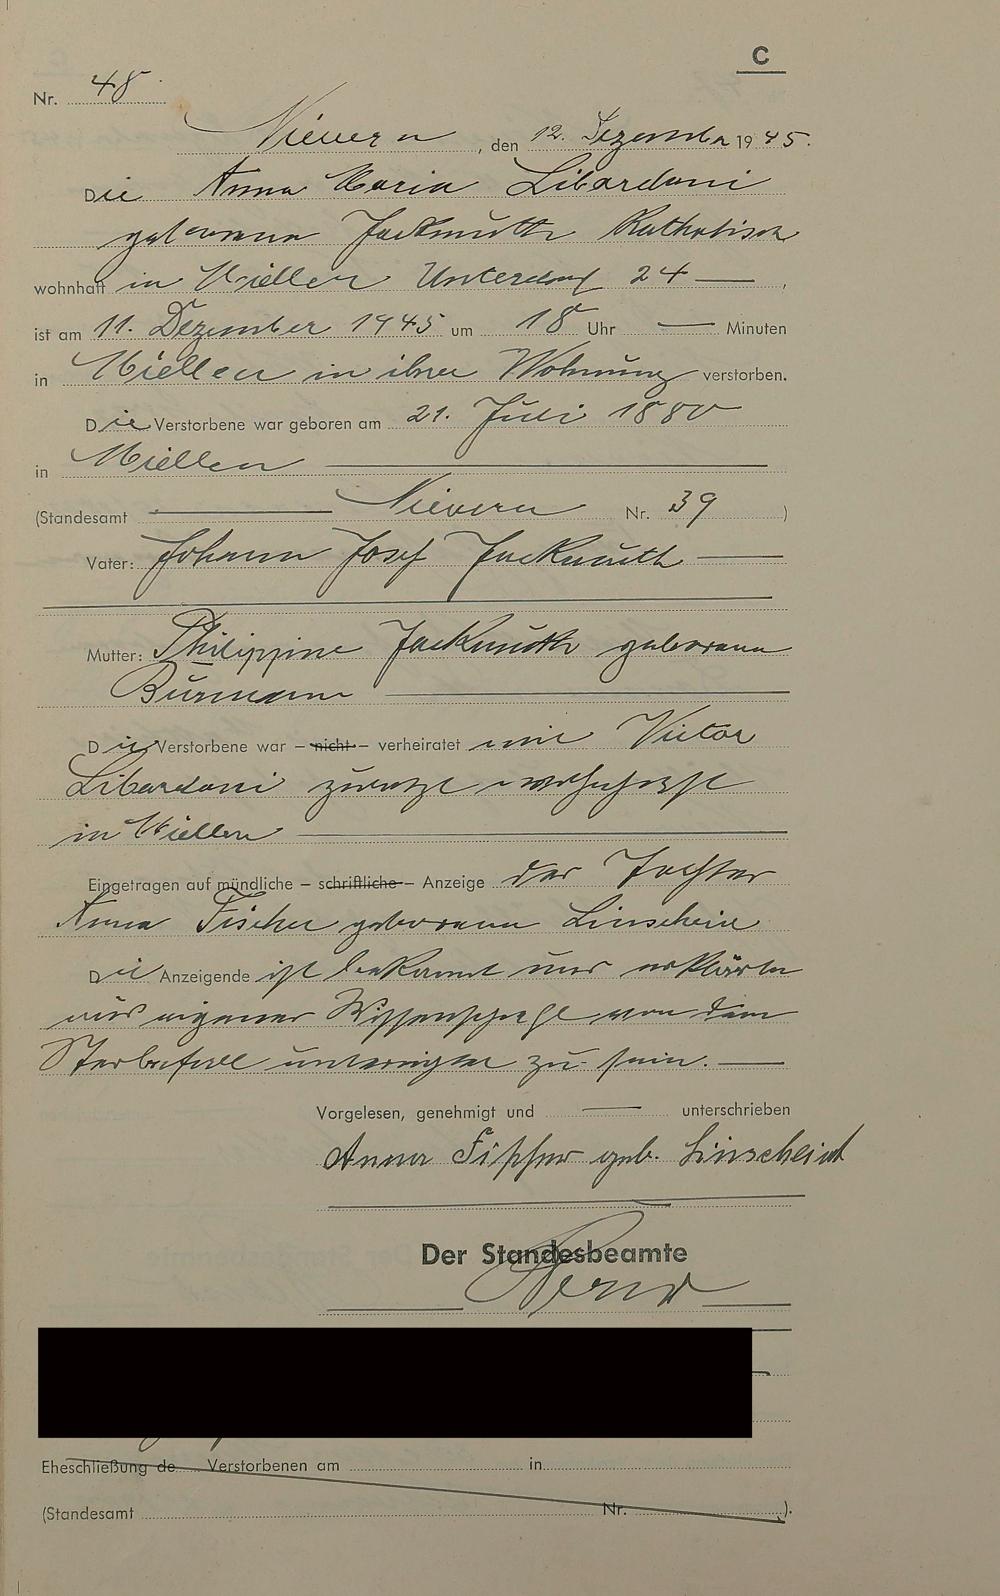 C
Nr. 48
Nievern, den 12. Dezember 1945.
Die Anna Maria Libardoni
geborene Jackmuth Katholisch
wohnhaft in Miellen Unterdorf 24 —,
ist am 11. Dezember 1945 um 18 Uhr — Minuten
in Miellen in ihrer Wohnung verstorben.
Die Verstorbene war geboren am 21. Juli 1880
in Miellen
(Standesamt — Nievern Nr. 39)
Vater: Johann Josef Jackmuth —
Mutter: Philippine Jackmuth geborene
Burmann —
Die Verstorbene war – nicht – verheiratet mit Victor
Libardoni zuletzt wohnhaft
in Miellen —
Eingetragen auf mündliche – schriftliche – Anzeige der Tochter
Anna Fischer geborene Linscheid
Die Anzeigende ist bekannt und erklärte
aus eigener Wissenschaft von dem
Sterbefall unterrichtet zu sein. —
Vorgelesen, genehmigt und — unterschrieben
Anna Fischer geb. Linscheid
Der Standesbeamte
Eheschließung de Verstorbenen am in
(Standesamt Nr. ).